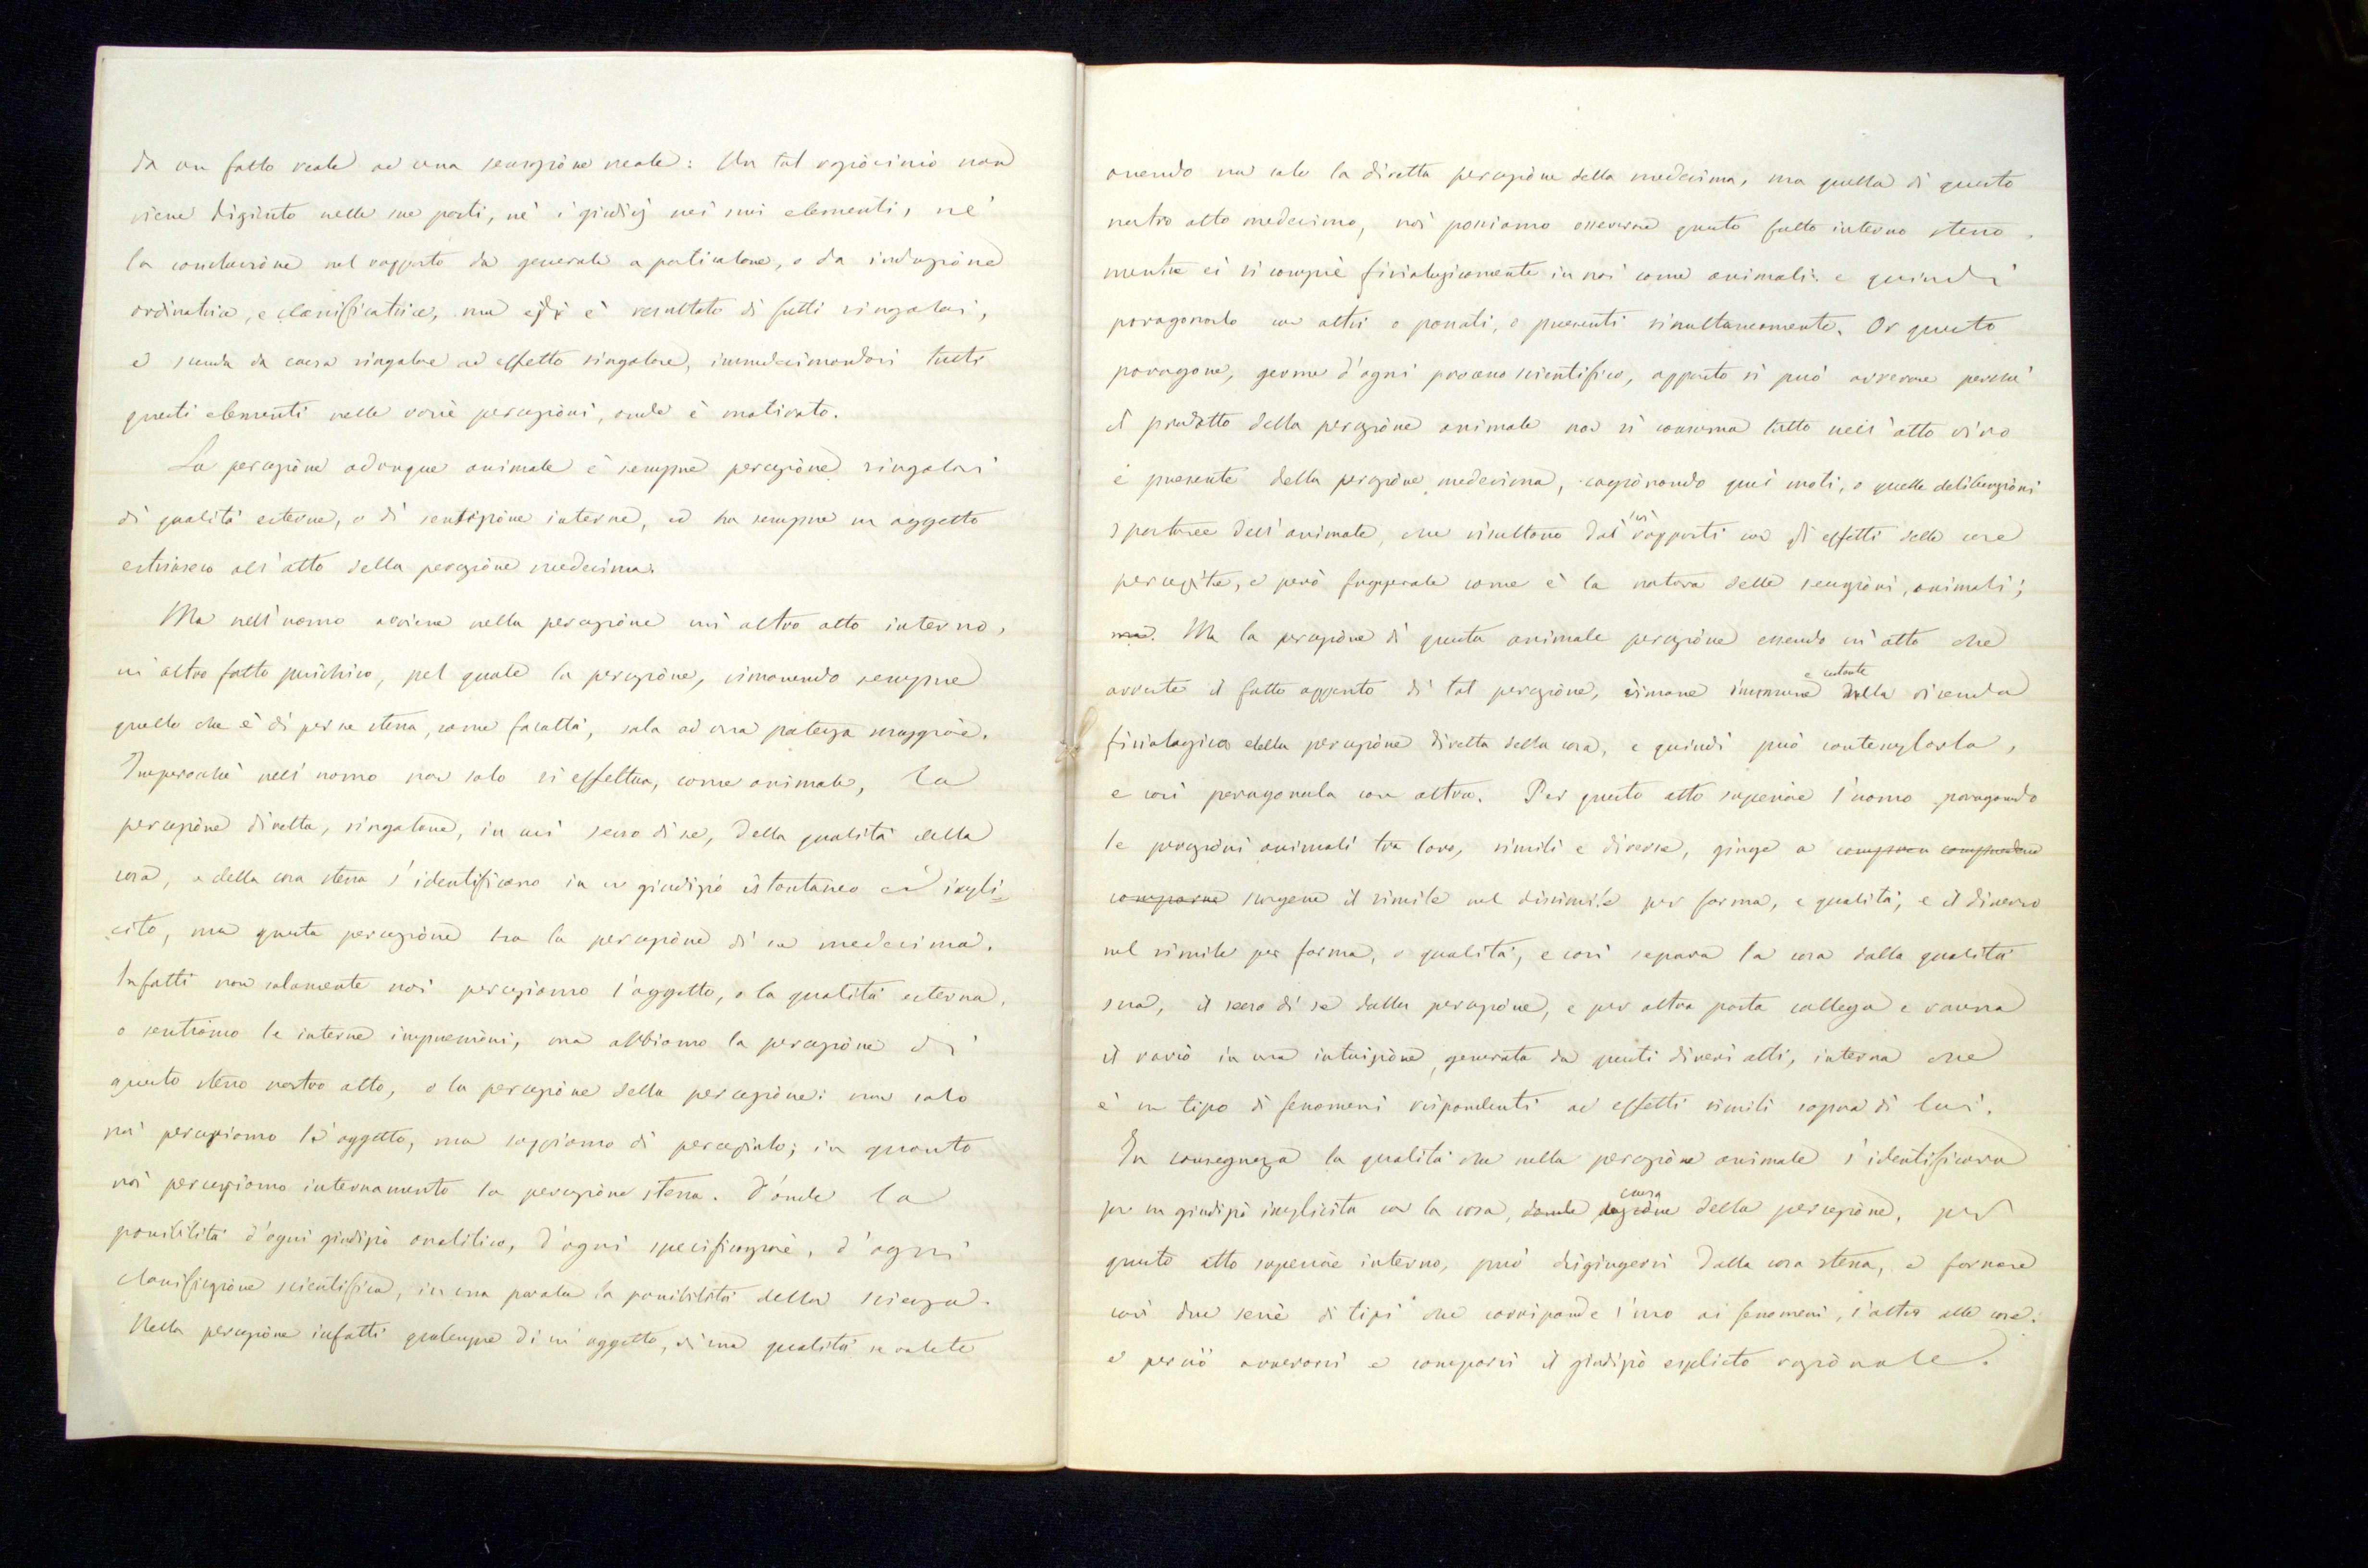 da un fatto reale ad una sensazione reale: Un tal raziocinio non
viene digiunto nelle sue parti, nè i giudizj nei suoi elementi, nè
la conclusione nel rapporto da generale a particolare, o da induzione
ordinatrice, e classificatrice, ma è resultato di fatti singolari,
e scende da causa singolare ad effetto singolare, immedesimandosi tutti
questi elementi nelle varie percezioni, onde è motivato.
La percezione adunque animale è sempre percezione singolari
di qualità esterne, o di sentizione interne, ed ha sempre un oggetto
estrinseco all'atto della percezione medesima.
Ma nell'uomo avviene nella percezione un'altro atto interno,
un altro fatto psichico, pel quale la percezione, rimanendo sempre
quello che è di per se stessa, come facoltà, sale ad una potenza maggiore.
Imperocchè nell'uomo non solo si effettua, come animale, la
percezione diretta, singolare, in cui senso di se, della qualità della
cosa, e della cosa stessa s'identificano in un giudizio istantaneo ed impli=
cito, ma questa percezione ha la percezione di se medesima.
Infatti non solamente noi percepiamo l'oggetto, o la qualità esterna,
o sentiamo le interne impressioni, ma abbiamo la percezione di
questo stesso nostro atto, o la percezione della percezione: non solo
noi percepiamo l'oggetto, ma sappiamo di percepirlo; in quanto
noi percepiamo internamente la percezione stessa. D'onde la
possibilità d'ogni giudizio analitico, d'ogni specificazione, d'ogni
classificazione scientifica, in una parola la possibilità della scienza.
Nella percezione infatti qualunque di un oggetto, di una qualità se volete
avendo non solo la diretta percezione della medesima, ma quella di questo
nostro atto medesimo, noi possiamo osservare questo fatto interno stesso,
mentre ei si compiè fisiologicamente in noi come animali: e quindi
paragonarlo con altri o passati, o presenti simultaneamente. Or questo
paragone, germe d'ogni processo scientifico, appunto si può avverare perchè
il prodotto della percezione animale non si consuma tutto nell'atto vivo
e presente della percezione medesima, cagionando quei moti, o quelle deliberazioni
spontanee dell'animale, che risultano dai suoi rapporti con gli effetti delle cose
percepite, e però fuggevole come è la natura delle sensazioni animali;
ma. Ma la percezione di questa animale percezione essendo un'atto che
avverte il fatto appunto di tal percezione, rimane immune e costante dalla vicenda
fisiologica della percezione diretta della cosa, e quindi può contemplarla,
e così paragonarla con altra. Per questo atto superiore l'uomo paragonando
le percezioni animali tra loro, simili e diverse, giunge a comprendere
comparare scorgere il simile nel dissimile per forma, e qualità, e il diverso
nel simile per forma, o qualità, e così separa la cosa dalla qualità
sua, il senso di se dalla percezione, e per altra parte collega e rauna
il vario in una intuizione, generata da questi diversi atti, interna che
è un tipo di fenomeni rispondenti ad effetti simili sopra di lui.
In conseguenza la qualità che nella percezione animale s'identificava
per un giudizio implicito con la cosa, causa della percezione, per
questo atto superiore interno, può disgiungersi dalla cosa stessa, e formare
così due serie di tipi che corrisponde l'uno ai fenomeni, l'altra alle cose:
e perciò avverarsi e comporsi il giudizio esplicito razionale.